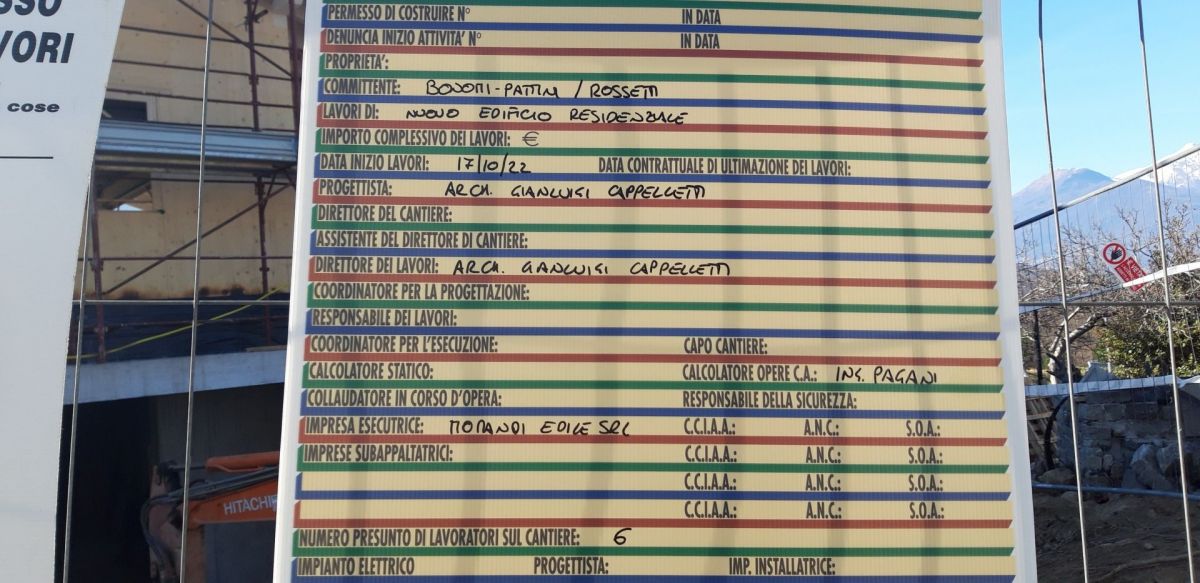 SSO
VORI
cose
PERMESSO DI COSTRUIRE N° IN DATA
DENUNCIA INIZIO ATTIVITA' N° IN DATA
PROPRIETA':
COMMITTENTE: BONOMI-PATTINI / ROSSETTI
LAVORI DI: NUOVO EDIFICIO RESIDENZIALE
IMPORTO COMPLESSIVO DEI LAVORI: €
DATA INIZIO LAVORI: 17/10/22 DATA CONTRATTUALE DI ULTIMAZIONE DEI LAVORI:
PROGETTISTA: ARCH. GIANLUIGI CAPPELLETTI
DIRETTORE DEL CANTIERE:
ASSISTENTE DEL DIRETTORE DI CANTIERE:
DIRETTORE DEI LAVORI: ARCH. GIANLUIGI CAPPELLETTI
COORDINATORE PER LA PROGETTAZIONE:
RESPONSABILE DEI LAVORI:
COORDINATORE PER L'ESECUZIONE: CAPO CANTIERE:
CALCOLATORE STATICO: CALCOLATORE OPERE C.A.: ING. PAGANI
COLLAUDATORE IN CORSO D'OPERA: RESPONSABILE DELLA SICUREZZA:
IMPRESA ESECUTRICE: MORANDI EDILE SRL C.C.I.A.A.: A.N.C.: S.O.A.:
IMPRESE SUBAPPALTATRICI: C.C.I.A.A.: A.N.C.: S.O.A.:
C.C.I.A.A.: A.N.C.: S.O.A.:
C.C.I.A.A.: A.N.C.: S.O.A.:
NUMERO PRESUNTO DI LAVORATORI SUL CANTIERE: 6
IMPIANTO ELETTRICO PROGETTISTA: IMP. INSTALLATRICE:
HITACHI